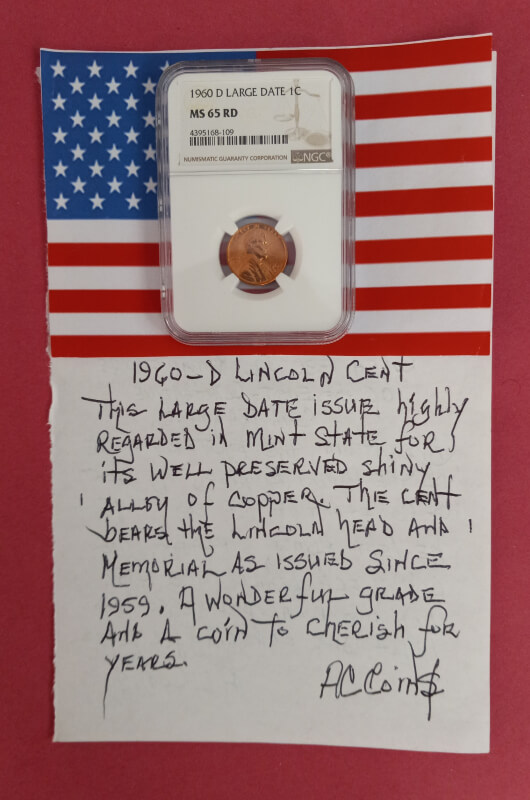 1960 D LARGE DATE 1C
MS 65 RD
4395168-109
NUMISMATIC GUARANTY CORPORATION
NGC
1960-D LINCOLN CENT
THIS LARGE DATE ISSUE highly
REGARDED in MINT STATE for
its WELL PRESERVED shiny
ALLOY of COPPER. THE CENT
bears the LINCOLN HEAD AND
MEMORIAL AS ISSUED SINCE
1959. A WONDERFUL GRADE
AND A COIN To CHERISH for
YEARS.
AC Coin$